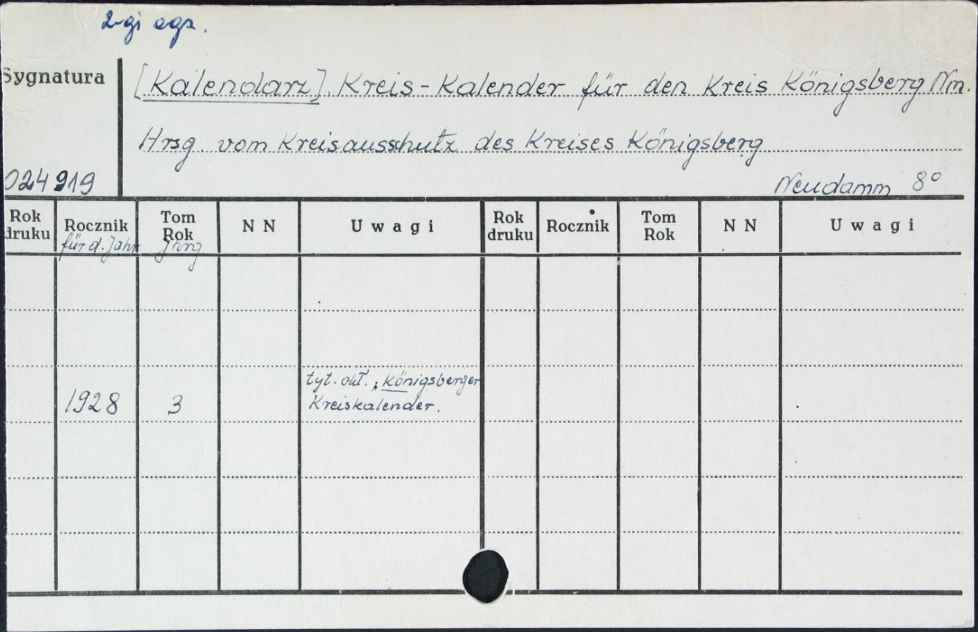 2-gi egz.
Sygnatura
[Kalendarz]. Kreis-Kalender für den Kreis Königsberg Nm.
Hrsg. vom Kreisausschutz des Kreises Königsberg
024919
Neudamm 8°
Rok druku Rocznik Tom Rok NN Uwagi Rok druku Rocznik Tom Rok NN Uwagi
für d. Jahr Jhrg
tyt. okł.: Königsberger
1928 3 Kreiskalender.